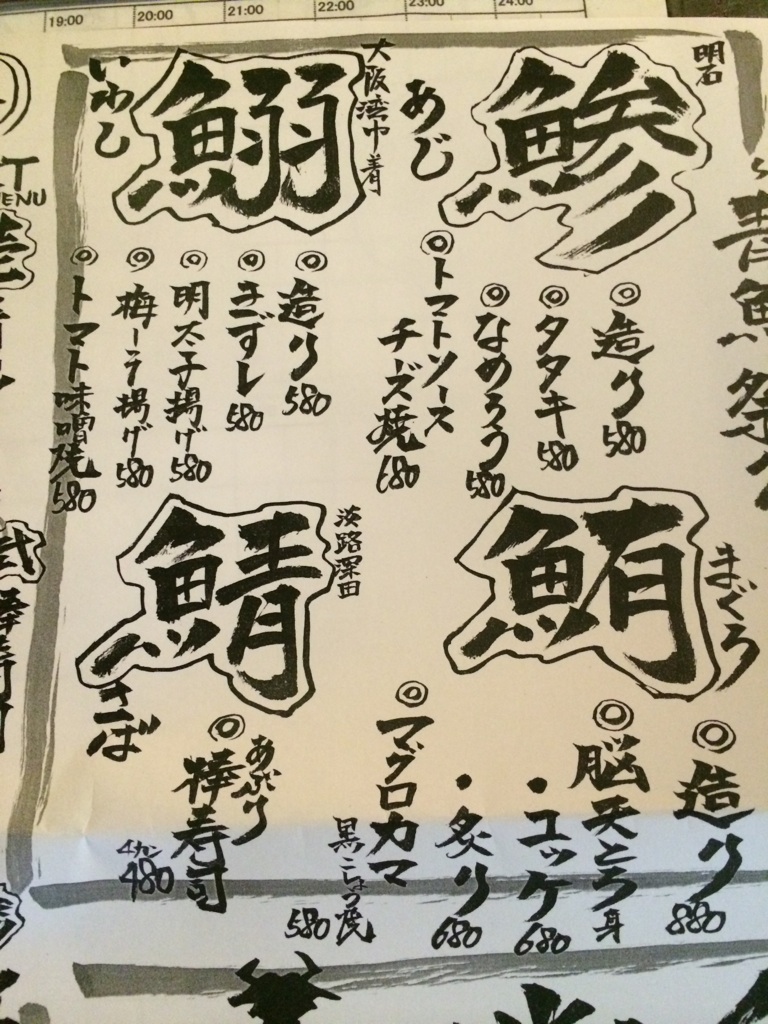 19:00 20:00 21:00 22:00 23:00 24:00
青魚祭り
明石
鯵
あじ
◎造り 580
◎タタキ 580
◎なめろう 580
◎トマトソース
チーズ焼 680
大阪湾巾着
鰯
いわし
◎造り 580
◎きずし 580
◎明太子揚げ 580
◎梅しそ揚げ 580
◎トマト味噌焼 580
まぐろ
鮪
◎造り 880
◎脳天とろ身
・ユッケ 680
・炙り 680
◎マグロカマ
黒こしょう焼 580
淡路深田
鯖
さば
◎あぶり
棒寿司
4カン 480
MENU